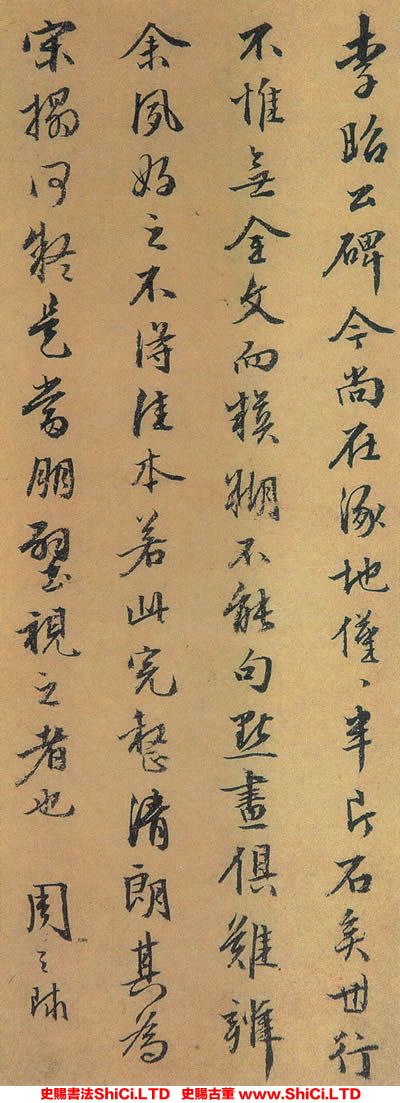 李昭公碑今尚在涿地僅、半片石矣世行
不惟無全文而模糊不能句點畫俱難辨
余夙好之不得佳本若此完整清朗其為
宋搨何疑是當朋璧視之者也 周之
史賜書法ShiCi.LTD 史賜古董 www.ShiCi.LTD